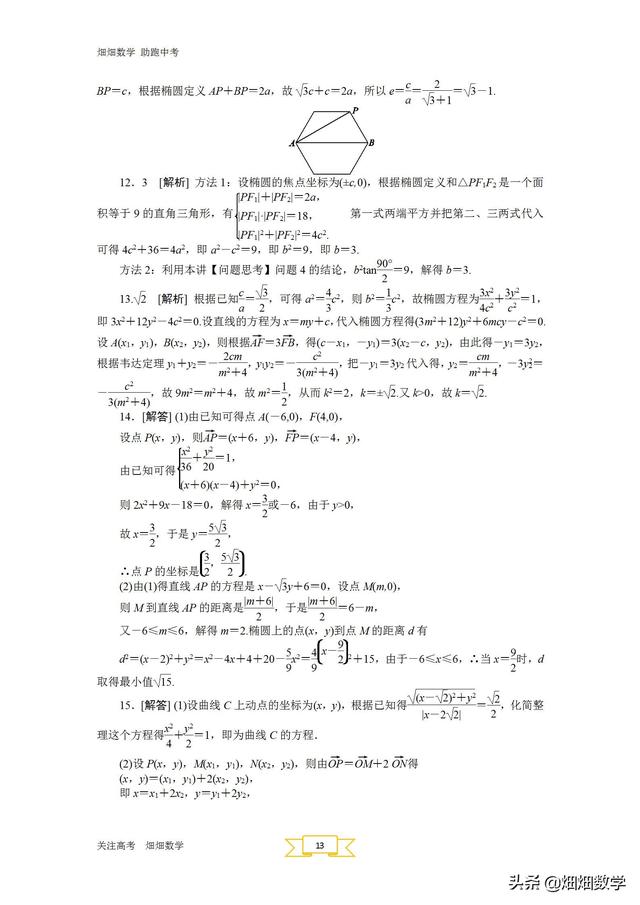 畑畑数学 助跑中考
BP=c，根据椭圆定义 AP+BP=2a，故 √3c+c=2a，所以 e=c/a=2/(√3+1)=√3-1.
P
A
B
12．3 [解析] 方法 1：设椭圆的焦点坐标为(±c,0)，根据椭圆定义和△PF₁F₂ 是一个面
积等于 9 的直角三角形，有{|PF₁|+|PF₂|=2a， |PF₁|·|PF₂|=18， |PF₁|²+|PF₂|²=4c². 第一式两端平方并把第二、三两式代入
可得 4c²+36=4a²，即 a²-c²=9，即 b²=9，即 b=3.
方法 2：利用本讲【问题思考】问题 4 的结论，b²tan(90°/2)=9，解得 b=3.
13.√2 [解析] 根据已知c/a=√3/2，可得 a²=4/3c²，则 b²=1/3c²，故椭圆方程为3x²/4c²+3y²/c²=1，
即 3x²+12y²-4c²=0.设直线的方程为 x=my+c，代入椭圆方程得(3m²+12)y²+6mcy-c²=0.
设 A(x₁，y₁)，B(x₂，y₂)，则根据AF→=3FB→，得(c-x₁，-y₁)=3(x₂-c，y₂)，由此得-y₁=3y₂，
根据韦达定理 y₁+y₂=-2cm/(m²+4)，y₁y₂=-c²/(3(m²+4))，把-y₁=3y₂ 代入得，y₂=cm/(m²+4)，-3y₂²=
-c²/(3(m²+4))，故 9m²=m²+4，故 m²=1/2，从而 k²=2，k=±√2.又 k>0，故 k=√2.
14．[解答] (1)由已知可得点 A(-6,0)，F(4,0)，
设点 P(x，y)，则AP→=(x+6，y)，FP→=(x-4，y)，
由已知可得{x²/36+y²/20=1， (x+6)(x-4)+y²=0，
则 2x²+9x-18=0，解得 x=3/2或-6，由于 y>0，
故 x=3/2，于是 y=5√3/2，
∴点 P 的坐标是(3/2，5√3/2).
(2)由(1)得直线 AP 的方程是 x-√3y+6=0，设点 M(m,0)，
则 M 到直线 AP 的距离是|m+6|/2，于是|m+6|/2=6-m，
又-6≤m≤6，解得 m=2.椭圆上的点(x，y)到点 M 的距离 d 有
d²=(x-2)²+y²=x²-4x+4+20-5/9x²=4/9(x-9/2)²+15，由于-6≤x≤6，∴当 x=9/2时，d
取得最小值√15.
15．[解答] (1)设曲线 C 上动点的坐标为(x，y)，根据已知得√((x-√2)²+y²)/|x-2√2|=√2/2，化简整
理这个方程得x²/4+y²/2=1，即为曲线 C 的方程．
(2)设 P(x，y)，M(x₁，y₁)，N(x₂，y₂)，则由OP→=OM→+2 ON→得
(x，y)=(x₁，y₁)+2(x₂，y₂)，
即 x=x₁+2x₂，y=y₁+2y₂，
关注高考 畑畑数学
13
头条 @畑畑数学